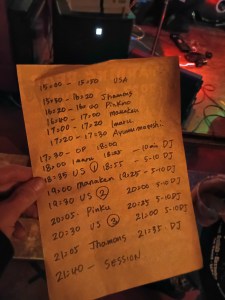 15:00 - 15:50 USA
15:50 - 16:20 Jhamons
16:20 - 16:40 Pinku
16:40 - 17:00 manaken
17:00 - 17:20 Imaru
17:20 - 17:30
17:30 - OP 18:00
18:00 Imaru 18:25 - 10min DJ
18:35 US ① 18:55 - 5-10 DJ
19:00 manaken 19:25 - 5-10 DJ
19:30 US ② 20:00 5-10 DJ
20:05 Pinku 20:25 5-10 DJ
20:30 US ③ 21:00 5-10 DJ
21:05 Jhamons 21:35 DJ
21:40 - SESSION